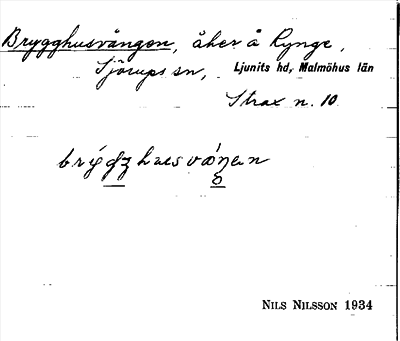 Brygghusvången, åker å Rynge,
Sjörups sn, Ljunits hd, Malmöhus län
Strax n. 10
NILS NILSSON 1934